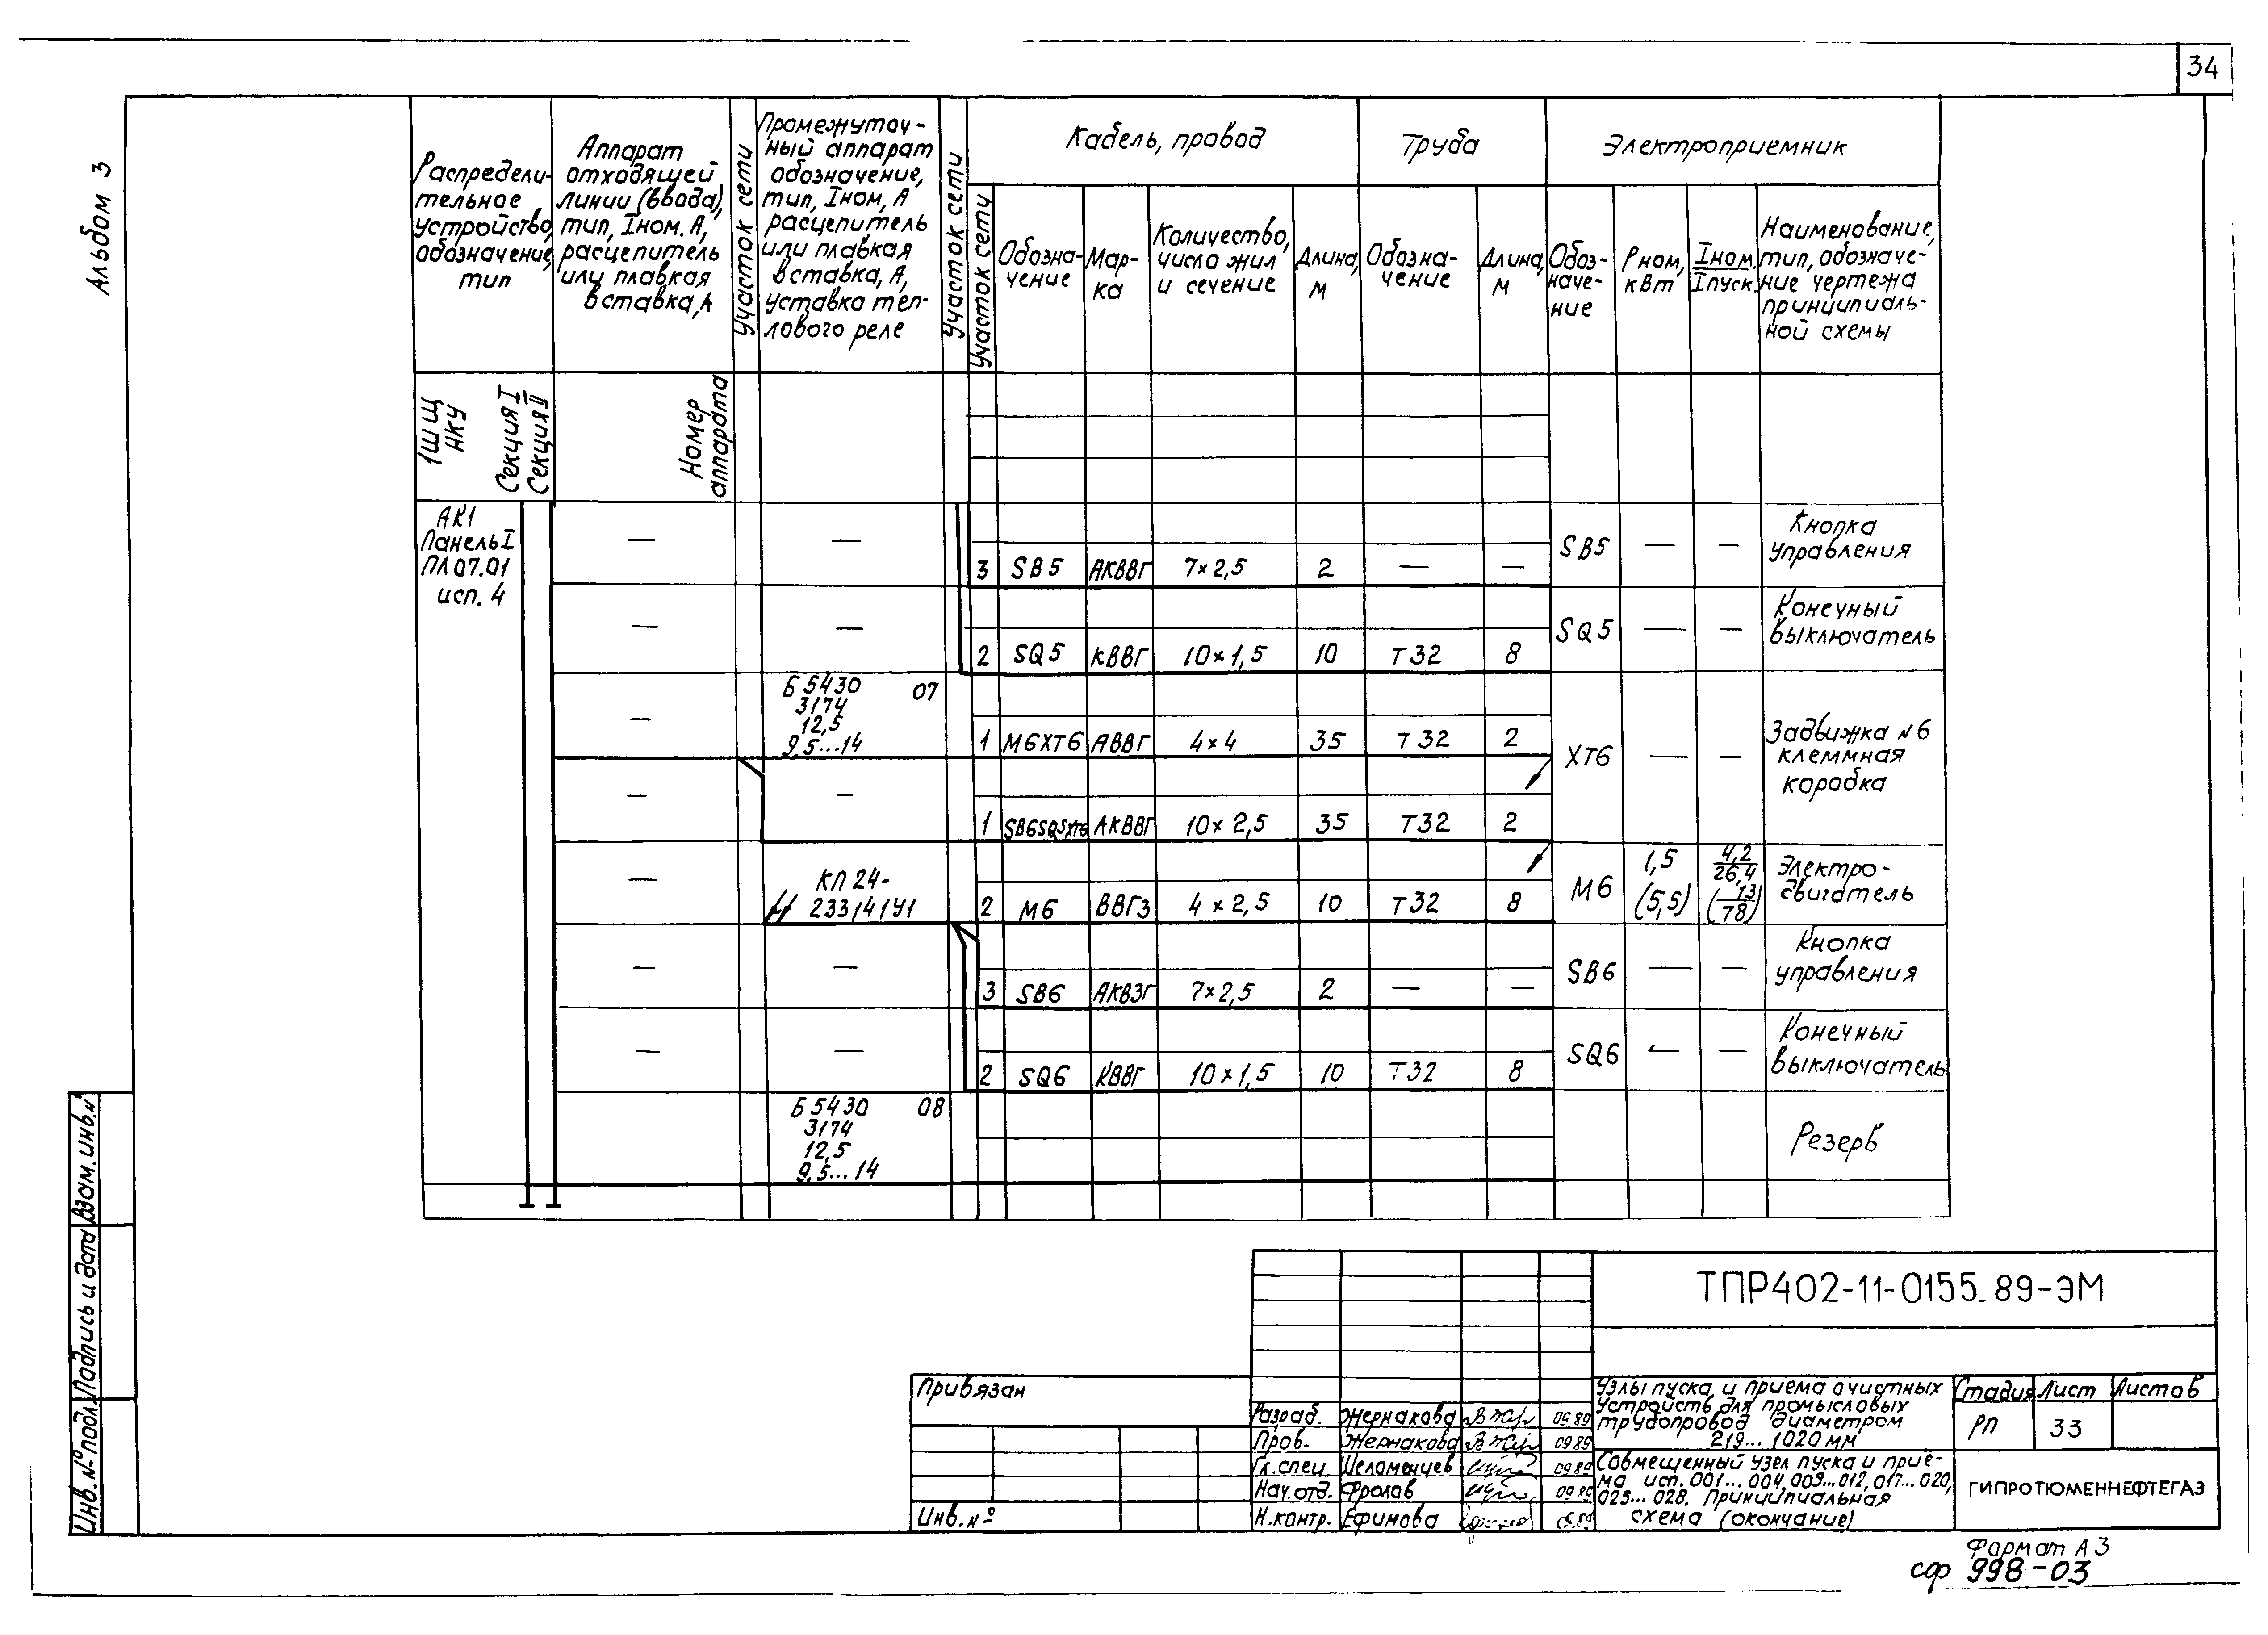 34
Альбом 3
Распредели-
тельное
устройство,
обозначение,
тип
Аппарат
отходящей
линии (ввода),
тип, Iном. А,
расцепитель
или плавкая
вставка, А
Участок сети
Промежуточ-
ный аппарат
обозначение,
тип, Iном, А
расцепитель
или плавкая
вставка, А,
уставка теп-
лового реле
Участок сети
Кабель, провод
Участок сети
Обозна-
чение
Мар-
ка
Количество,
число жил
и сечение
Длина,
м
Труба
Обозна-
чение
Длина,
м
Электроприемник
Обоз-
наче-
ние
Рном,
кВт
Iном.
Iпуск.
Наименование,
тип, обозначе-
ние чертежа
принципиаль-
ной схемы
1ШЩ
НКУ
Секция I
Секция II
Номер
аппарата
АК1
Панель I
ПЛ07.01
исп. 4
— — 3 SB5 АКВВГ 7×2,5 2 — — SB5 — — Кнопка
управления
— — 2 SQ5 КВВГ 10×1,5 10 Т32 8 SQ5 — — Конечный
выключатель
— Б5430 07
3174
12,5
9,5...14
1 М6ХТ6 АВВГ 4×4 35 Т32 2 ХТ6 — — Задвижка №6
клеммная
коробка
— — 1 SB6SQ5XT6 АКВВГ 10×2,5 35 Т32 2
— КП24-
233141У1
2 М6 ВВГз 4×2,5 10 Т32 8 М6 1,5
(5,5)
4,2
26,4
(13
78)
Электро-
двигатель
— — 3 SB6 АКВЗГ 7×2,5 2 — — SB6 — — Кнопка
управления
— — 2 SQ6 КВВГ 10×1,5 10 Т32 8 SQ6 — — Конечный
выключатель
Б5430 08
3174
12,5
9,5...14
Резерв
Взам. инв. №
Подпись и дата
Инв. № подл.
ТПР402-11-0155.89-ЭМ
Привязан
Инв. №
Разраб. Жернакова 09.89
Пров. Жернакова 09.89
Гл. спец. Шеломенцев 09.89
Нач. отд. Фролов 09.89
Н. контр. Ефимова 09.89
Узлы пуска и приема очистных
устройств для промысловых
трубопровод диаметром
219... 1020 мм
Стадия Лист Листов
РП 33
Совмещенный узел пуска и прие-
ма исп. 001...004, 009...012, 017...020,
025...028. Принципиальная
схема (окончание)
ГИПРОТЮМЕННЕФТЕГАЗ
Формат А3
сф 998-03